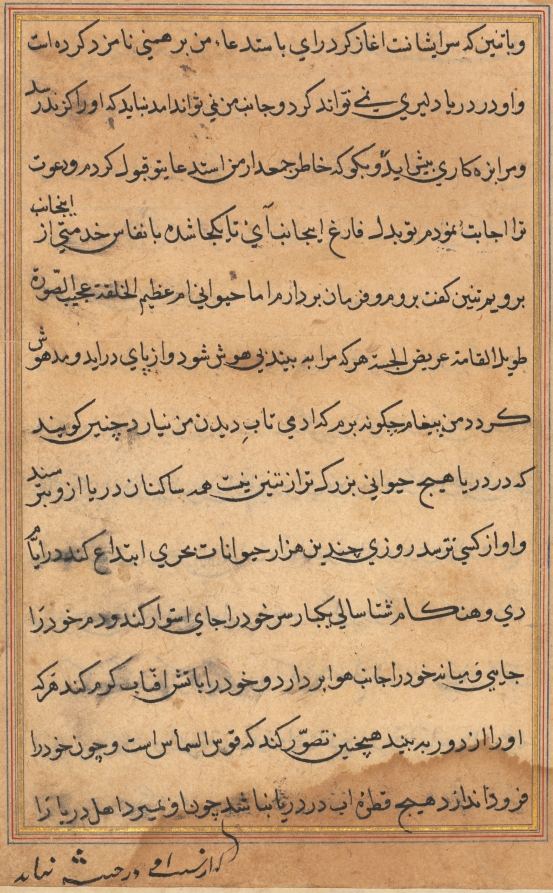 و باتنین که سر ایشانت اغاز کرد رای باستدعاء من بر همینی نامزد کرده است
و او در دریا دلیری نمی تواند کرد و جانب من نمی تواند امد نباید که او را کز ندرسد
و مرا بزه کاری پیش اید و بکو که خاطر جمعدار من استدعا یتو قبول کردم و دعوت
ترا اجابت نمودم تو بدل فارغ اینجانب آی تا یکجا شده با نفاس خدمتی از اینجانب
برویم تنین کفت بروم و فرمان بردارم اما حیوانی ام عظیم الخلقة عجیب الصّورة
طویل القامة عریض الجسة هر که مرا به بیند بی هوش شود و از پای در اید و مدهوش
کردد من پیغام چکونه برم که ادمی تابِ دیدن من نیارد چنین کویند
که در دریا هیچ حیوانی بزرک تر از تنین نیست همه ساکنان دریا ازو بترسند
و او از کسی نترسد روزی چندین هزار حیوانات بحری ابتداع کند در ایّام
دی و هنکام شتا سالی یکبار سر خود را جای استوار کند و دم خود را
جایی و میانه خود را جانب هوا بر دارد و خود را باتش افتاب کرم کند هر که
او را از دور به بیند همچنین تصوّر کند که قوس السماس است و چون خود را
فرود اندازد هیچ قطره اب در دریا بنا شد چون او نمیرد اهل دریا را